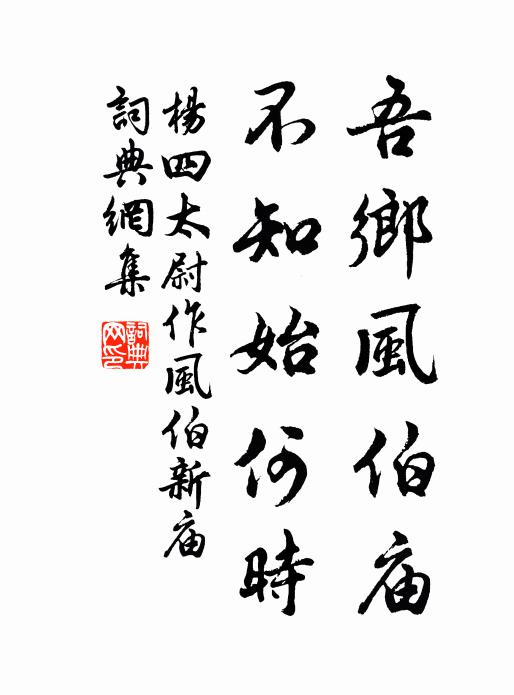 吾鄉風伯庙
不知始何時
楊四太尉作風伯新庙
詞典網集
詞典网印